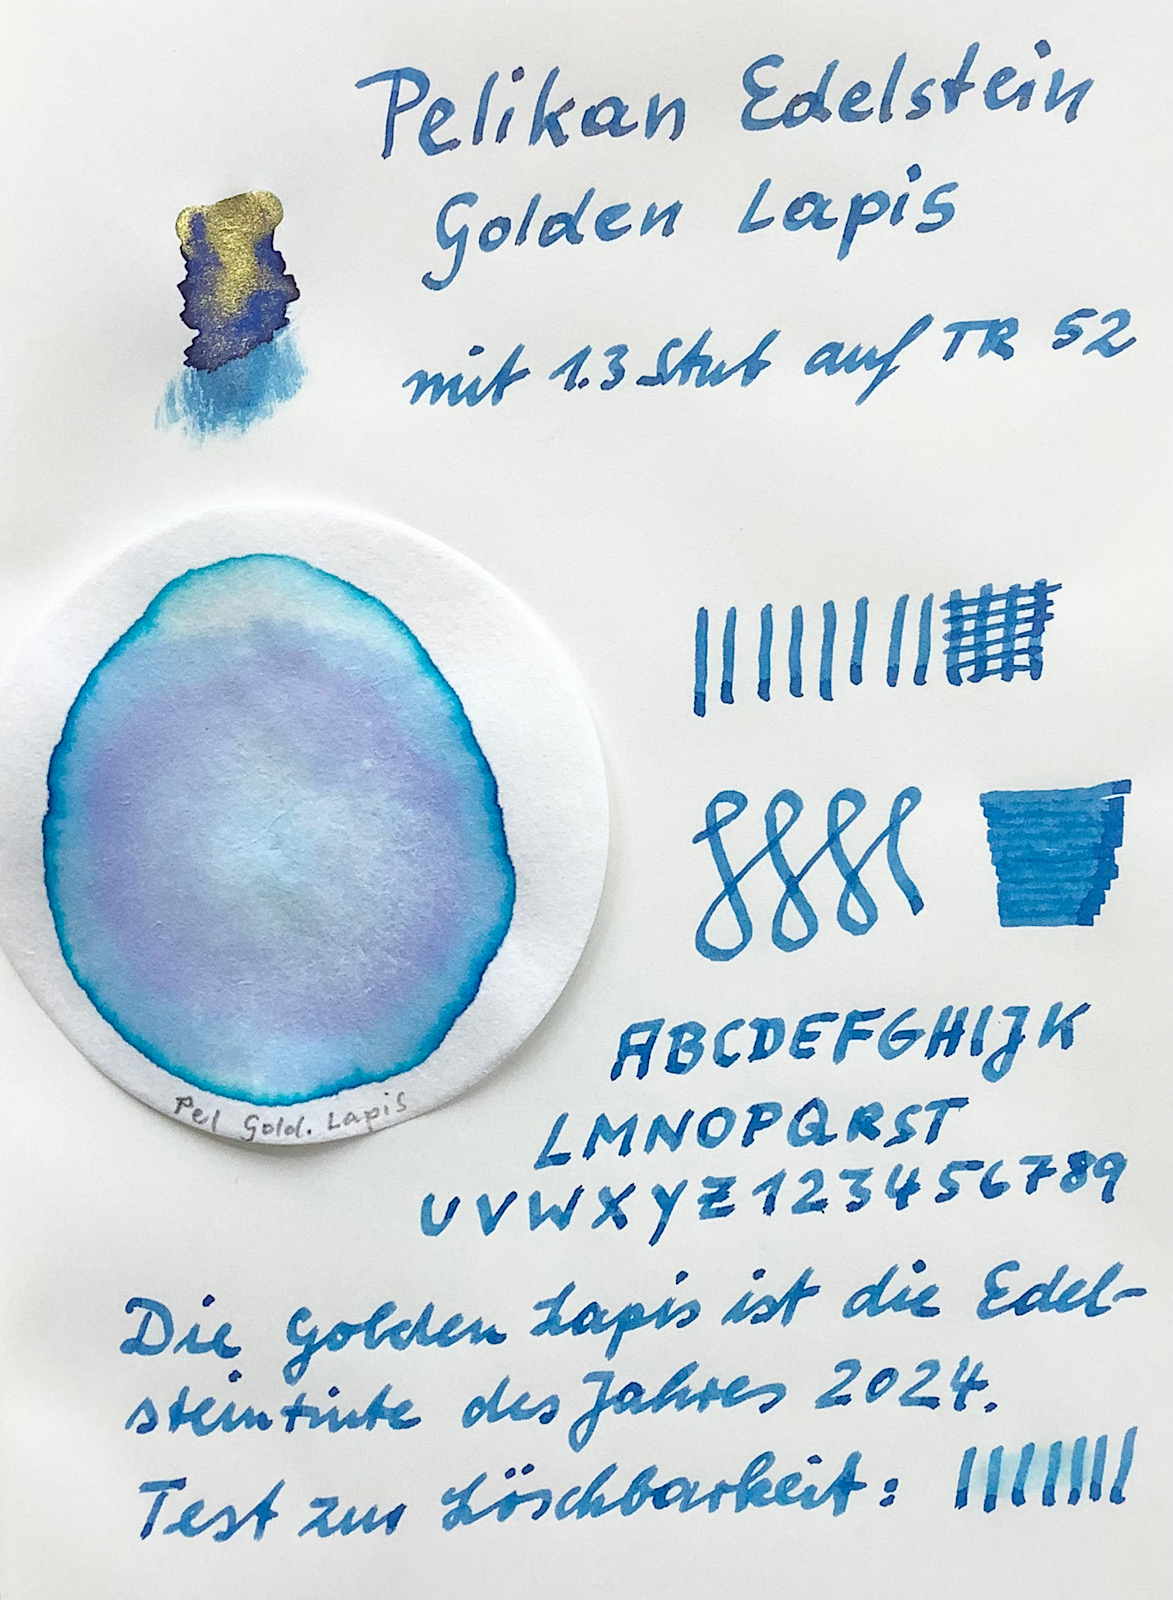 Pelikan Edelstein
Golden Lapis
mit 1.3 Stub auf TR 52
Pel Gold. Lapis
ABCDEFGHIJK
LMNOPQRST
UVWXYZ123456789
Die Golden Lapis ist die Edel-
steintinte des Jahres 2024.
Test zur Löschbarkeit: